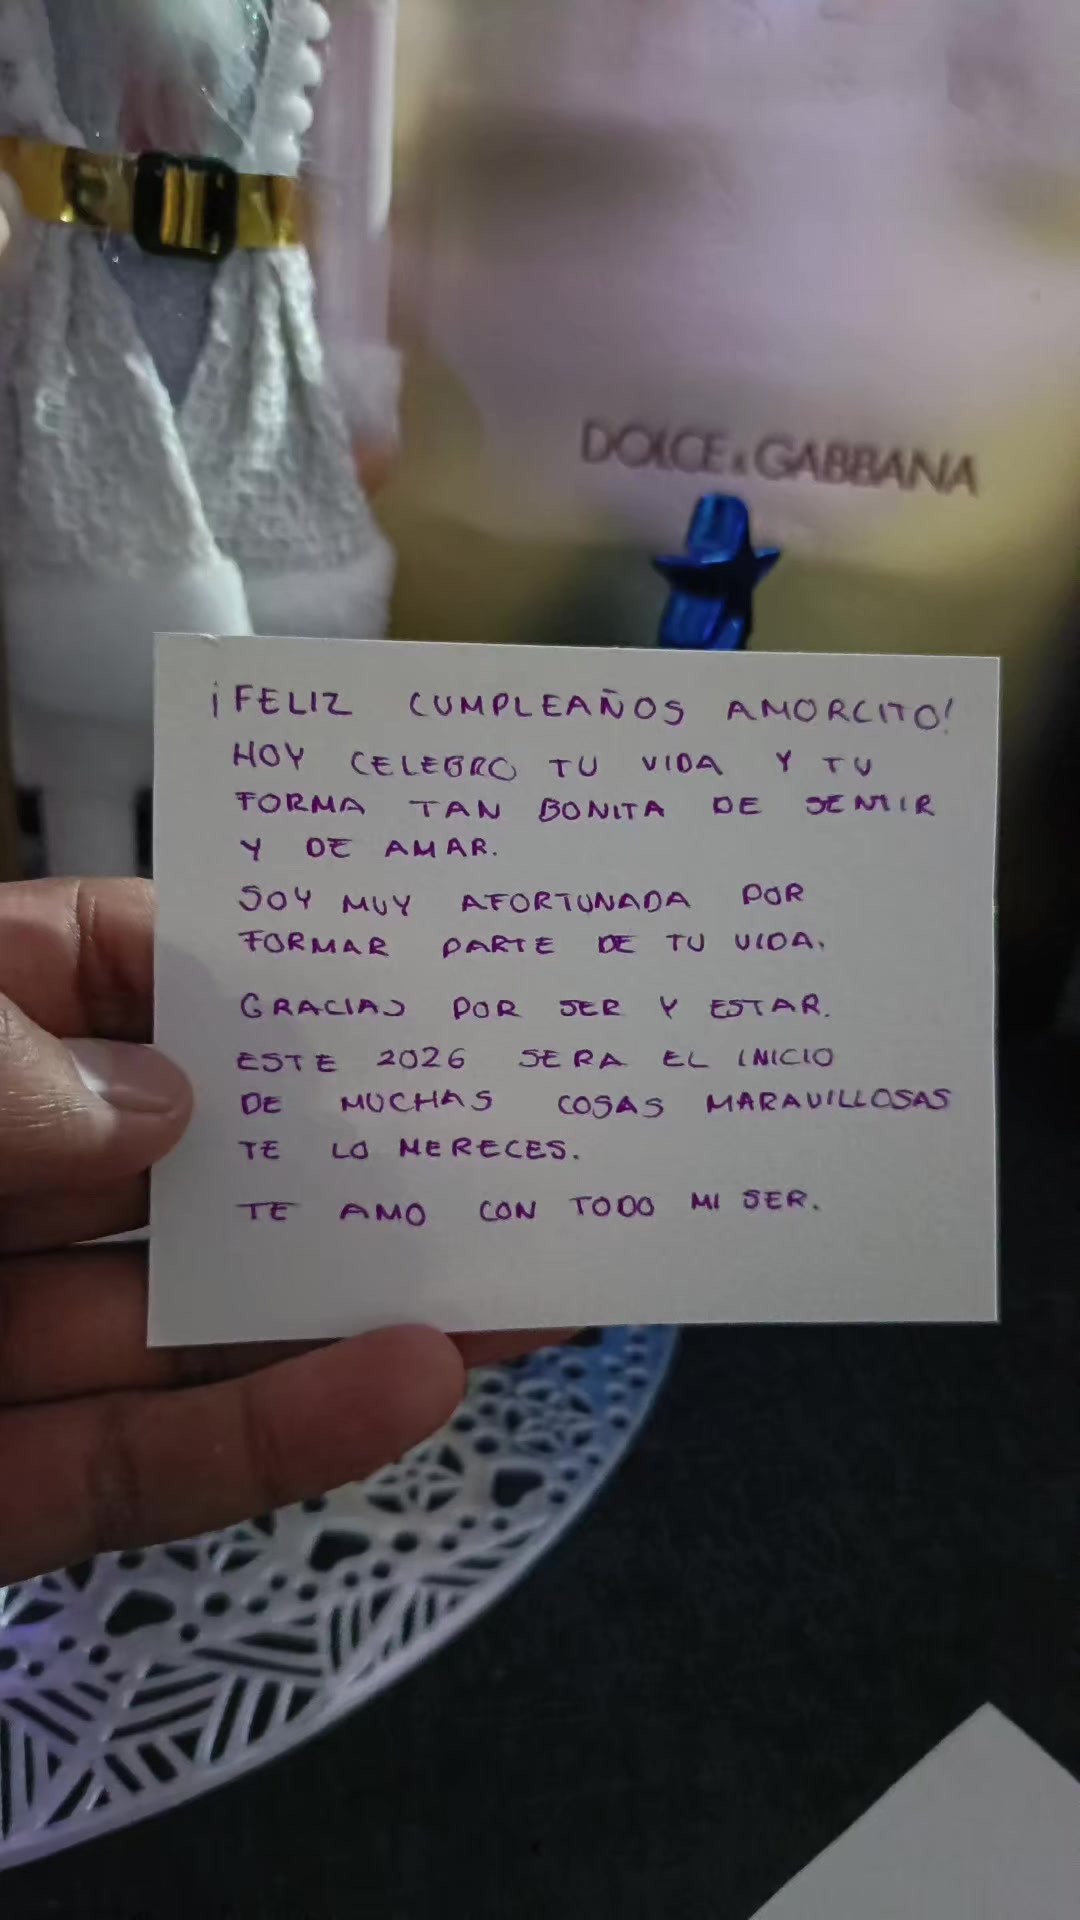 DOLCE & GABBANA
¡FELIZ CUMPLEAÑOS AMORCITO!
HOY CELEBRO TU VIDA Y TU
FORMA TAN BONITA DE SENTIR
Y DE AMAR.
SOY MUY AFORTUNADA POR
FORMAR PARTE DE TU VIDA.
GRACIAS POR SER Y ESTAR.
ESTE 2026 SERA EL INICIO
DE MUCHAS COSAS MARAVILLOSAS
TE LO MERECES.
TE AMO CON TODO MI SER.